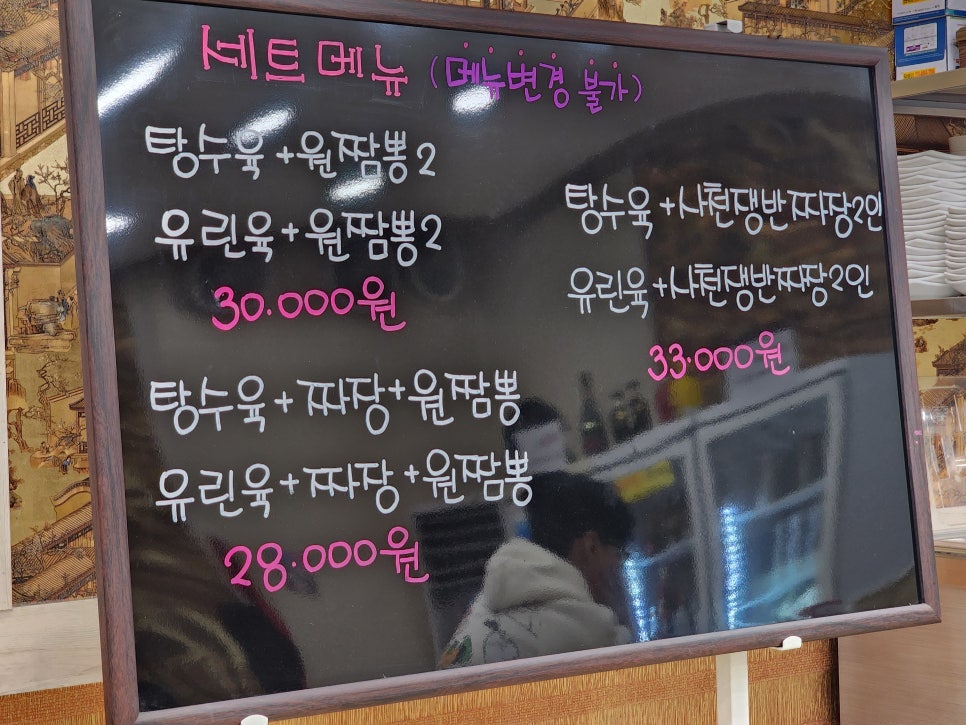 세트메뉴 (메뉴변경 불가)
탕수육+원짬뽕2
유린육+원짬뽕2
30.000원
탕수육+짜장+원짬뽕
유린육+짜장+원짬뽕
28.000원
탕수육+사천쟁반짜장2인
유린육+사천쟁반짜장2인
33.000원